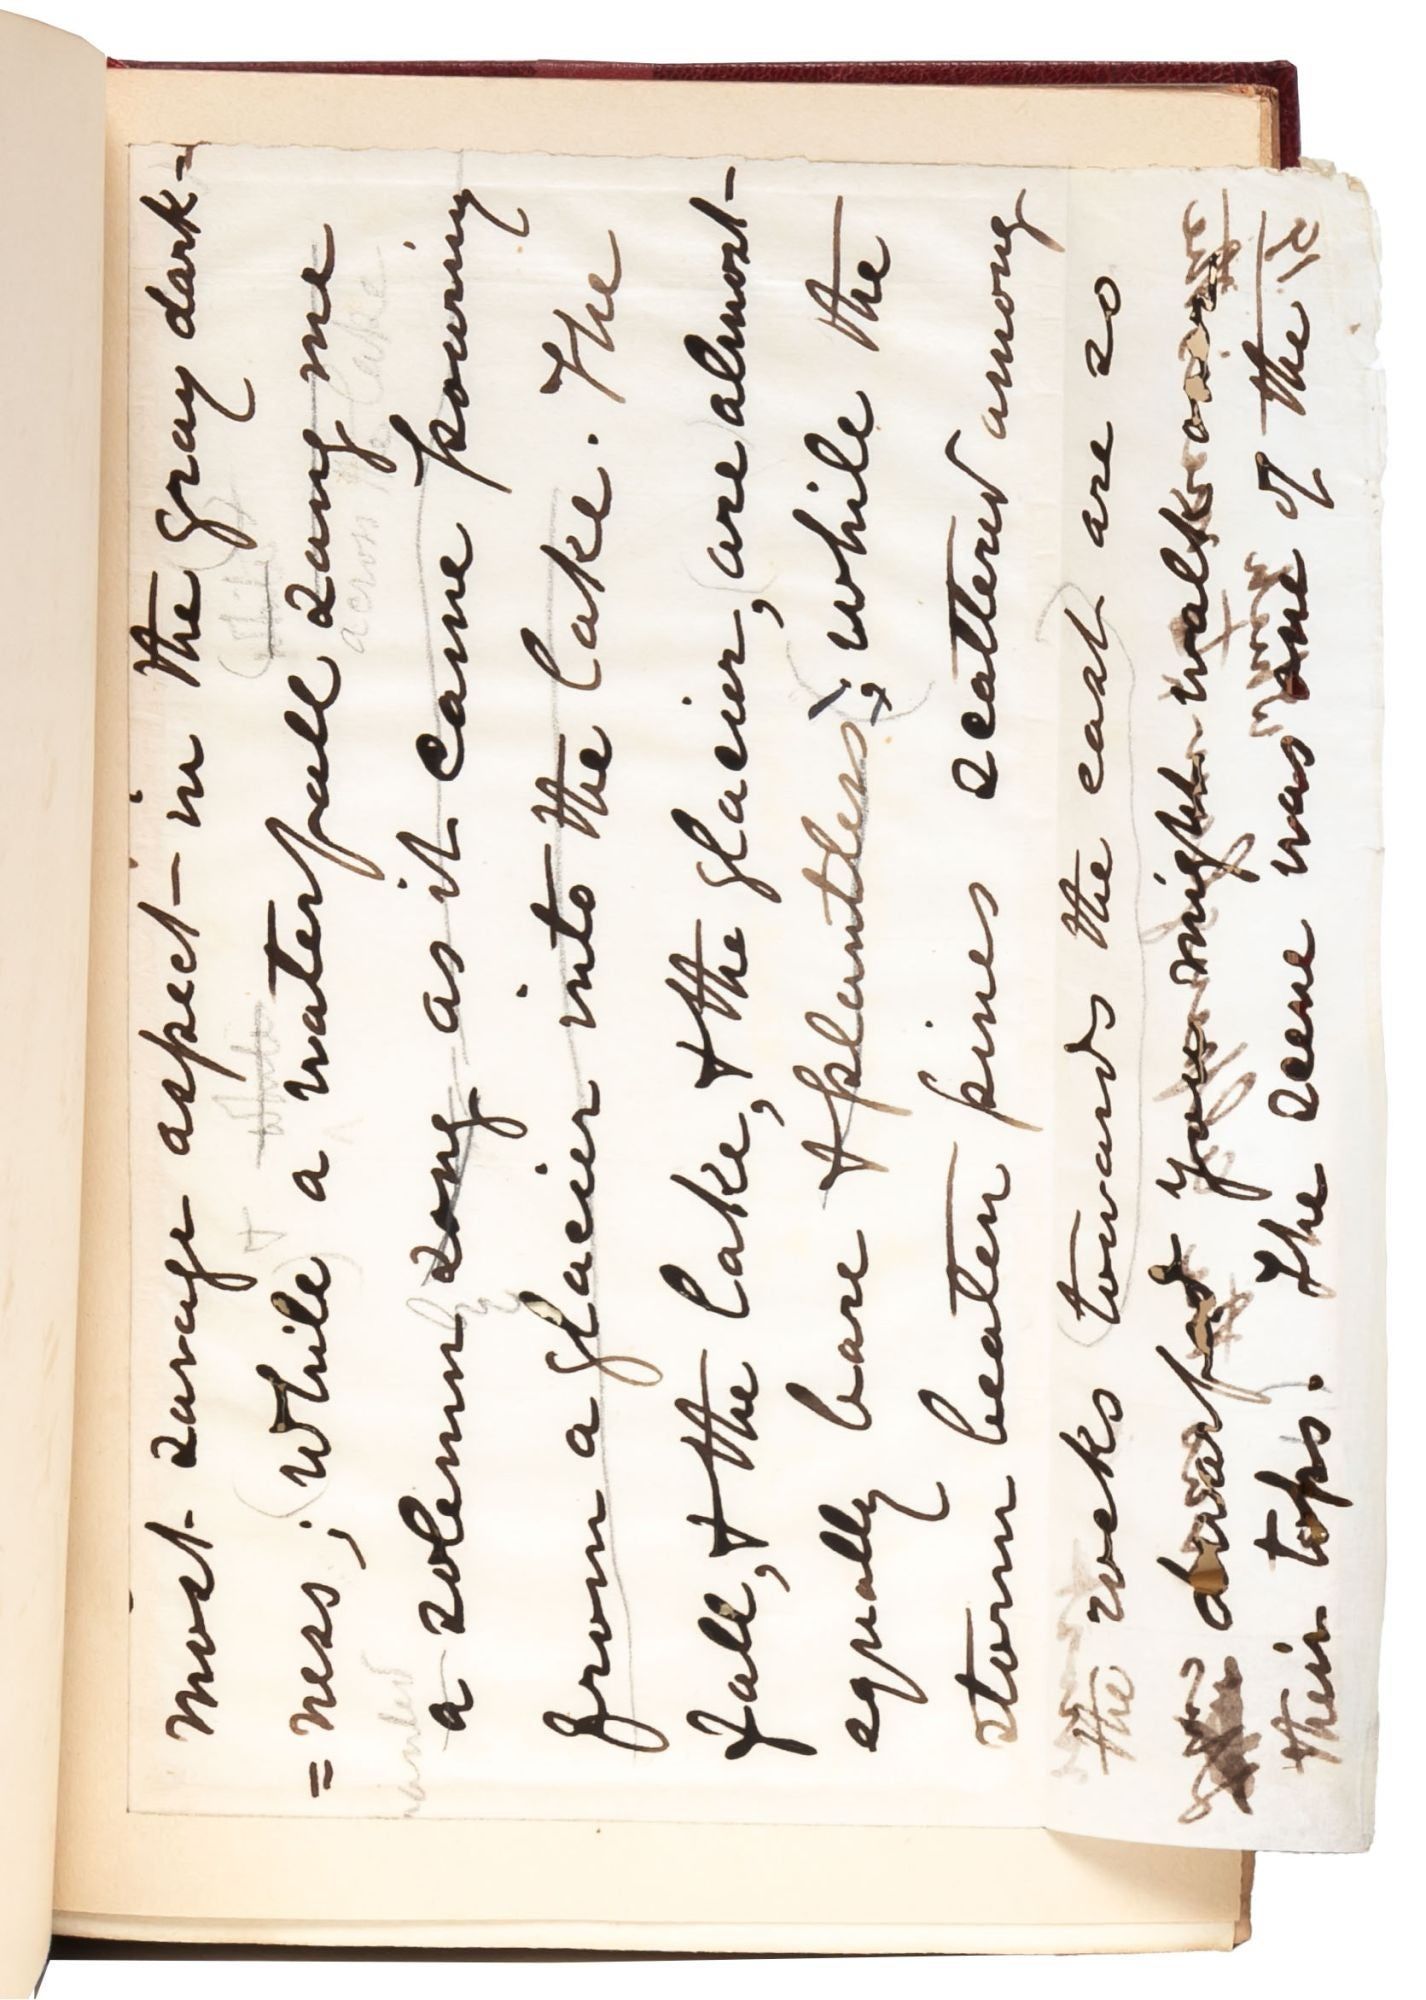 most savage aspect in the gray dark-
=ness; while a waterfall sang me
a solemn song as it came pouring
from a glacier into the lake. The
fall, & the lake, & the glacier, are almost
equally bare & plantless; while the
storm beaten pines scattered among
the rocks towards the east are so
dwarfed you might walk over
their tops. The scene was one of the